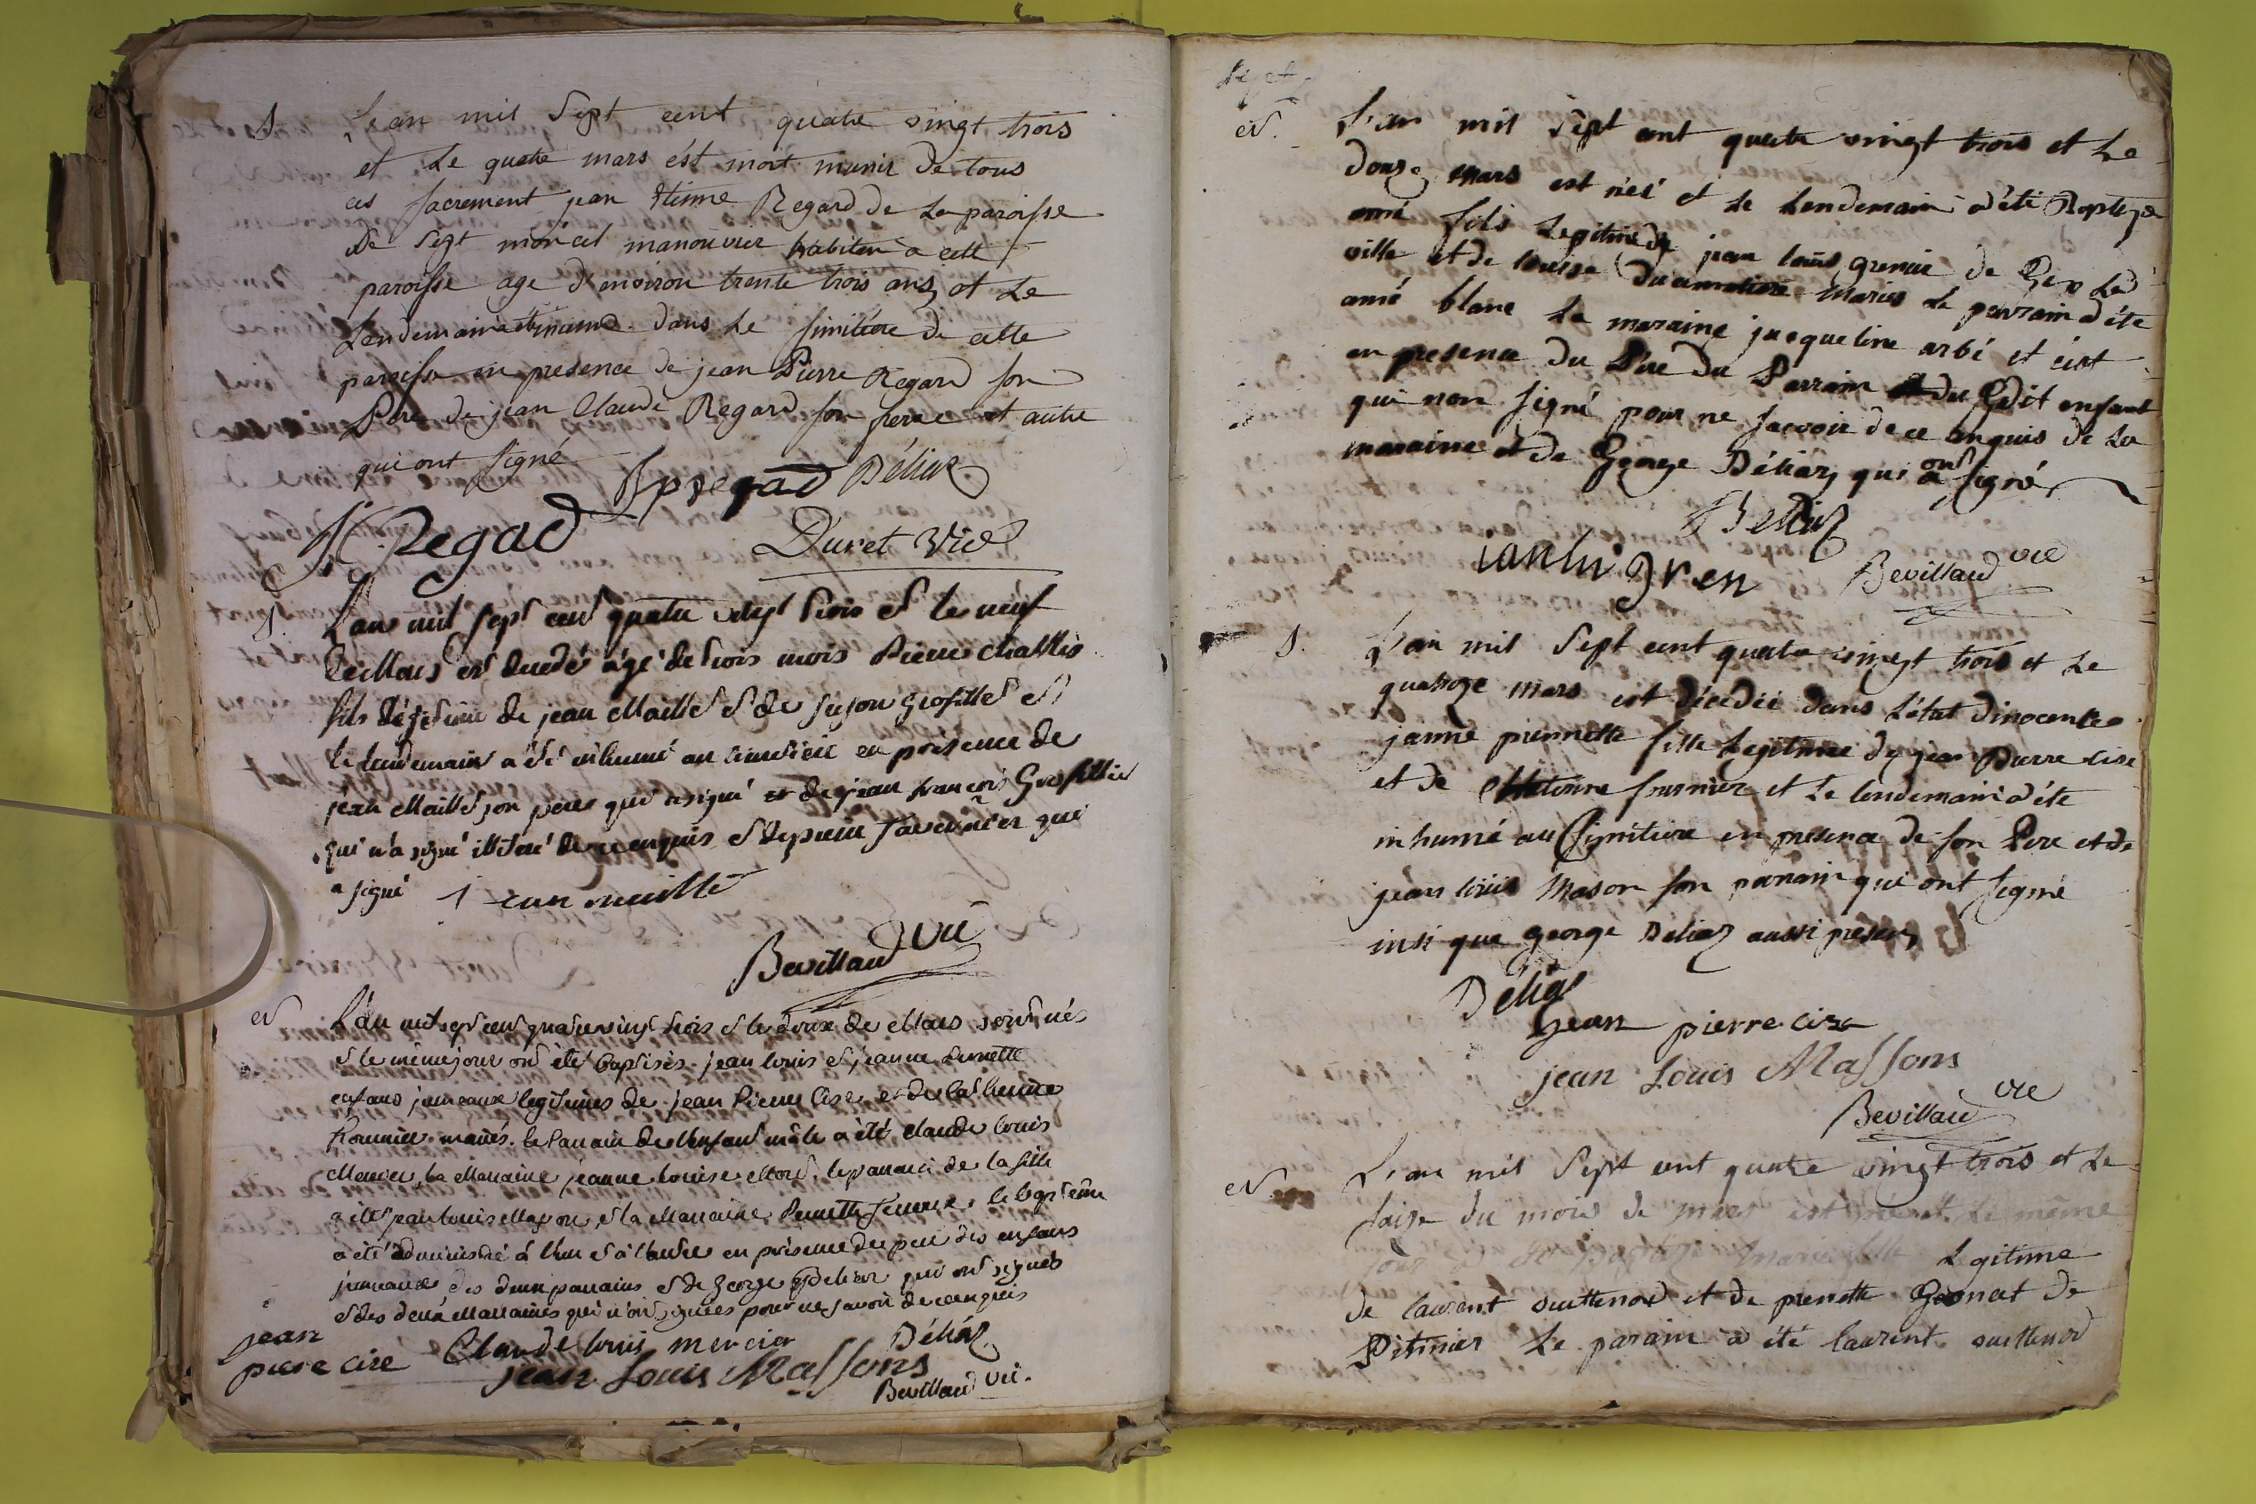 S. L'an mil sept cent quatre vingt trois
et le quatre mars est mort munir de tous
ces sacrement jean Etienne Regard de La paroisse
de sept moncel manouvrier habiten a cette
paroisse age d'environ trente trois ans et Le
Lendemain a dans Le simitiere de cette
paroisse en presence de jean Pierre Regard son
Pere de jean Claude Regard son frere et autre
qui ont signé
Regad Déliaz
Regad Duret Vice
S. L'an mil sept cent quatre vingt trois et le neuf
de Mars est decedé agé de trois mois Pierre
fils légitime de jean Maillet et de suzon Grosfillet et
le lendemain a été inhumé au cimetière en présence de
jean Maillet son pere qui a signé et de jean françois Grosfillier
qui n'a signé illitéré de ce enquis et
a signé jean maillet
Bevillaud vic
N L'an mil sept cent quatre vingt trois et le douze de Mars sont nés
et le même jour ont été baptisés jean louis et jeanne Pernette
enfans jumeaux légitimes de jean Pierre Cise et de Catherine
fournier mariés. le Parrain de l'enfant mâle a été Claude louis
Mercier, la Marraine jeanne louise le parrain de la fille
a été jean louis Masson et la Marraine Pernette le baptême
a été administré à l'un et à l'autre en présence du pere des enfans
jumeaux, des deux parrains et de George Deliaz qui ont signés
et des deux Marraines qui n'ont signées pour ne savoir de ce enquis
jean Claude louis mercier Déliaz
piere cise jean Louis Massons
Bevillaud vic.
N. L'an mil sept cent quatre vingt trois et Le
douze mars est neé et le Lendemain a été Baptize
amé fils Legitime de jean louis grenier de Gex Led
ville et de louise mariés Le parrain a été
amé blanc La maraine jacqueline arbé et c'est
en presence du Pere du Parrain du Edit enfant
qui non signé pour ne sçavoir de ce enquis de La
maraine et de George Déliaz qui ont signé
Deliaz
Bevillaud vic
S. L'an mil sept cent quatre vingt trois et Le
quatroze mars est décedée dans L'état d'inocence
janne piernette fille Legitime de jean Pierre cise
et de fournier et Le lendemain a été
inhumé au simitiere en presence de son Pere et de
jean louis Mason son parrain qui ont signé
insi que george Déliaz aussi présen
Déliaz
jean pierre cise
jean Louis Massons
Bevillaud vic
N. L'an mil sept cent quatre vingt trois et Le
saize du mois de mars est né et Le même
jour Legitime
de laurent vuittenod et de piernette de
Le parain a été laurent vuittenod